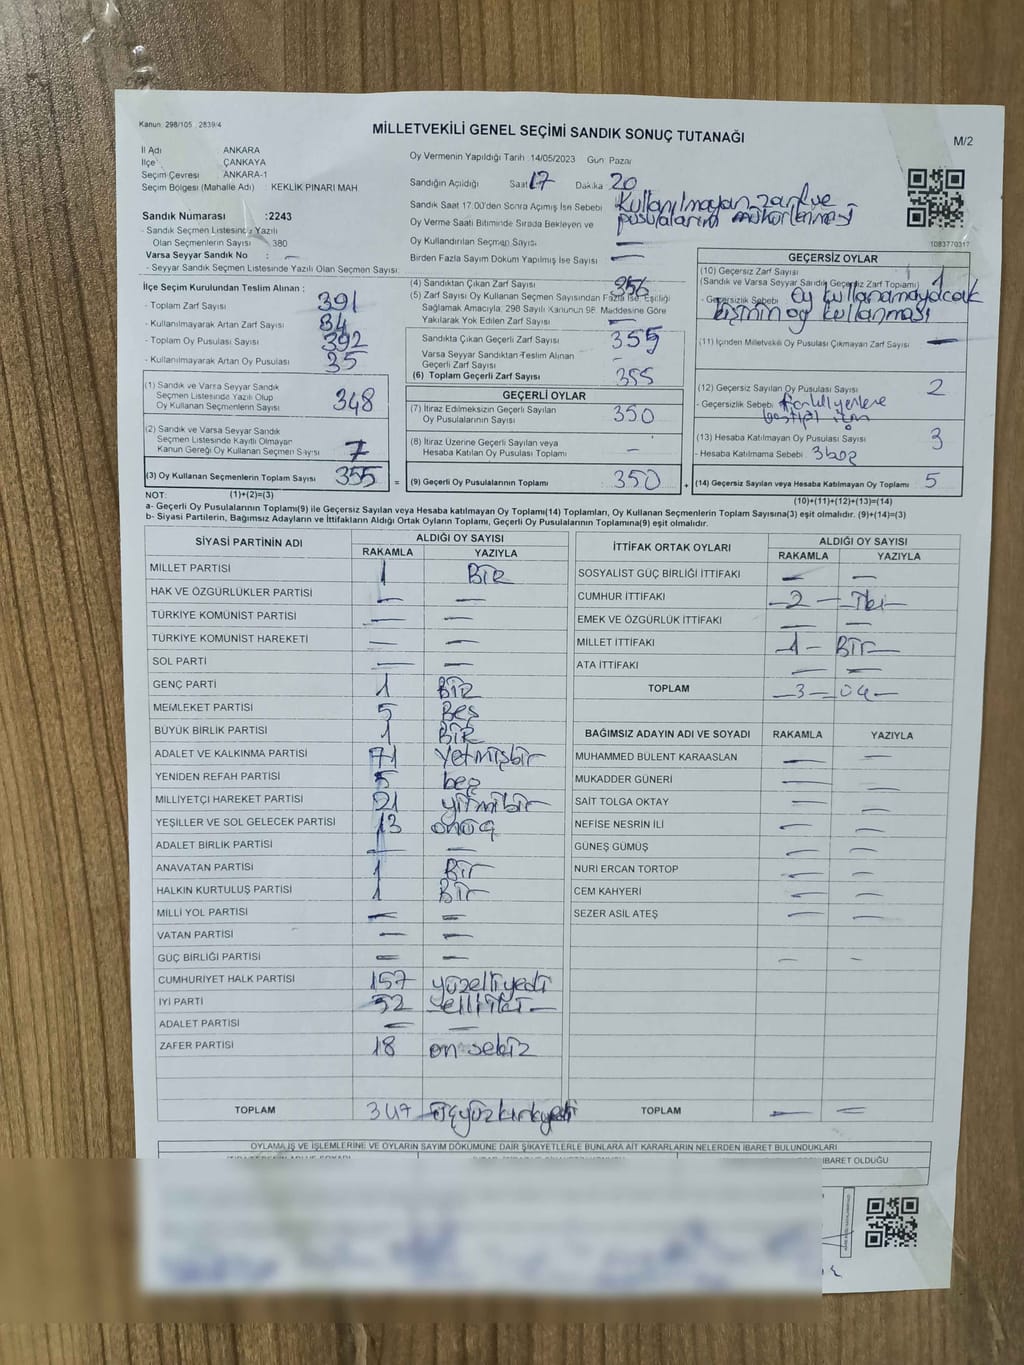 Kanun 298/105 2839/4
MİLLETVEKİLİ GENEL SEÇİMİ SANDIK SONUÇ TUTANAĞI
M/2
İl Adı ANKARA
İlçe ÇANKAYA
Seçim Çevresi ANKARA-1
Seçim Bölgesi (Mahalle Adı) KEKLİK PINARI MAH
Sandık Numarası :2243
- Sandık Seçmen Listesinde Yazılı
Olan Seçmenlerin Sayısı 380
Varsa Seyyar Sandık No : —
- Seyyar Sandık Seçmen Listesinde Yazılı Olan Seçmen Sayısı:
Oy Vermenin Yapıldığı Tarih :14/05/2023 Gün Pazar
Sandığın Açıldığı Saat 17 Dakika 20
Sandık Saat 17:00'den Sonra Açılmış İse Sebebi Kullanılmayan zarf ve
pusulaların mühürlenmesi
Oy Verme Saati Bitiminde Sırada Bekleyen ve
Oy Kullandırılan Seçmen Sayısı —
Birden Fazla Sayım Döküm Yapılmış İse Sayısı —
1083770317
İlçe Seçim Kurulundan Teslim Alınan :
- Toplam Zarf Sayısı 391
- Kullanılmayarak Artan Zarf Sayısı
- Toplam Oy Pusulası Sayısı 392
- Kullanılmayarak Artan Oy Pusulası 35
(1) Sandık ve Varsa Seyyar Sandık
Seçmen Listesinde Yazılı Olup
Oy Kullanan Seçmenlerin Sayısı 348
(2) Sandık ve Varsa Seyyar Sandık
Seçmen Listesinde Kayıtlı Olmayan
Kanun Gereği Oy Kullanan Seçmen Sayısı 7
(3) Oy Kullanan Seçmenlerin Toplam Sayısı 355 =
(4) Sandıktan Çıkan Zarf Sayısı 356
(5) Zarf Sayısı Oy Kullanan Seçmen Sayısından Fazla ise, Eşitliği
Sağlamak Amacıyla, 298 Sayılı Kanunun 98. Maddesine Göre
Yakılarak Yok Edilen Zarf Sayısı —
Sandıkta Çıkan Geçerli Zarf Sayısı 355
Varsa Seyyar Sandıktan Teslim Alınan
Geçerli Zarf Sayısı —
(6) Toplam Geçerli Zarf Sayısı 355
GEÇERLİ OYLAR
(7) İtiraz Edilmeksizin Geçerli Sayılan
Oy Pusulalarının Sayısı 350
(8) İtiraz Üzerine Geçerli Sayılan veya
Hesaba Katılan Oy Pusulası Toplamı —
(9) Geçerli Oy Pusulalarının Toplamı 350 +
GEÇERSİZ OYLAR
(10) Geçersiz Zarf Sayısı 1
(Sandık ve Varsa Seyyar Sandık Geçersiz Zarf Toplamı)
- Geçersizlik Sebebi Oy kullanamayacak
kişinin oy kullanması
(11) İçinden Milletvekili Oy Pusulası Çıkmayan Zarf Sayısı —
(12) Geçersiz Sayılan Oy Pusulası Sayısı 2
- Geçersizlik Sebebi farklı yerlere
(13) Hesaba Katılmayan Oy Pusulası Sayısı 3
- Hesaba Katılmama Sebebi 3 boş
(14) Geçersiz Sayılan veya Hesaba Katılmayan Oy Toplamı 5
NOT: (1)+(2)=(3)
(10)+(11)+(12)+(13)=(14)
a- Geçerli Oy Pusulalarının Toplamı(9) ile Geçersiz Sayılan veya Hesaba katılmayan Oy Toplamı(14) Toplamları, Oy Kullanan Seçmenlerin Toplam Sayısına(3) eşit olmalıdır. (9)+(14)=(3)
b- Siyasi Partilerin, Bağımsız Adayların ve İttifakların Aldığı Ortak Oyların Toplamı, Geçerli Oy Pusulalarının Toplamına(9) eşit olmalıdır.
SİYASİ PARTİNİN ADI ALDIĞI OY SAYISI
RAKAMLA YAZIYLA
MİLLET PARTİSİ 1 BİR
HAK VE ÖZGÜRLÜKLER PARTİSİ — —
TÜRKİYE KOMÜNİST PARTİSİ — —
TÜRKİYE KOMÜNİST HAREKETİ — —
SOL PARTİ — —
GENÇ PARTİ 1 BİR
MEMLEKET PARTİSİ 5 Beş
BÜYÜK BİRLİK PARTİSİ 1 BİR
ADALET VE KALKINMA PARTİSİ 71 Yetmişbir
YENİDEN REFAH PARTİSİ 5 beş
MİLLİYETÇİ HAREKET PARTİSİ 21 yirmibir
YEŞİLLER VE SOL GELECEK PARTİSİ 13 onüç
ADALET BİRLİK PARTİSİ — —
ANAVATAN PARTİSİ 1 Bir
HALKIN KURTULUŞ PARTİSİ 1 Bir
MİLLİ YOL PARTİSİ — —
VATAN PARTİSİ — —
GÜÇ BİRLİĞİ PARTİSİ — —
CUMHURİYET HALK PARTİSİ 157 yüzelliyedi
İYİ PARTİ 52 elliiki
ADALET PARTİSİ — —
ZAFER PARTİSİ 18 on sekiz
TOPLAM 347 üçyüzkırkyedi
İTTİFAK ORTAK OYLARI ALDIĞI OY SAYISI
RAKAMLA YAZIYLA
SOSYALİST GÜÇ BİRLİĞİ İTTİFAKI — —
CUMHUR İTTİFAKI —2— —İki—
EMEK VE ÖZGÜRLÜK İTTİFAKI — —
MİLLET İTTİFAKI —1— BİR—
ATA İTTİFAKI — —
TOPLAM —3— —ÜÇ—
BAĞIMSIZ ADAYIN ADI VE SOYADI RAKAMLA YAZIYLA
MUHAMMED BÜLENT KARAASLAN — —
MUKADDER GÜNERİ —
SAİT TOLGA OKTAY — —
NEFİSE NESRİN İLİ — —
GÜNEŞ GÜMÜŞ — —
NURİ ERCAN TORTOP — —
CEM KAHYERİ — —
SEZER ASİL ATEŞ — —
— —
TOPLAM — —
OYLAMA İŞ VE İŞLEMLERİNE VE OYLARIN SAYIM DÖKÜMÜNE DAİR ŞİKAYETLERLE BUNLARA AİT KARARLARIN NELERDEN İBARET BULUNDUKLARI
İBARET OLDUĞU